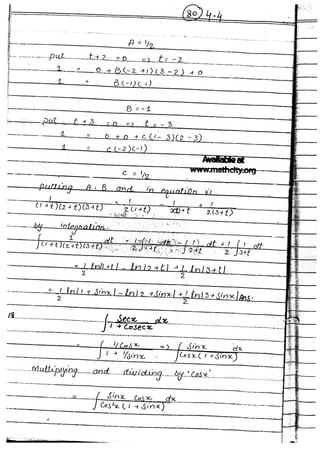 80 4.4
A = 1/2
put t+2 = 0 => t = -2
1 = 0 + B(-2+1)(3-2) + 0
1 = B(-1)(1)
B = -1
put t+3 = 0 => t = -3
1 = 0 + 0 + C(1-3)(2-3)
1 = C(-2)(-1)
Available at
www.mathcity.org
C = 1/2
putting A, B and in equation
1/(1+t)(2+t)(3+t) = 1/2(1+t) - 1/2+t + 1/2(3+t)
by integration
∫ 1/(1+t)(2+t)(3+t) dt = 1/2 ∫ 1/1+t dt - ∫ 1/2+t dt + 1/2 ∫ 1/3+t dt
= 1/2 ln|1+t| - ln|2+t| + 1/2 ln|3+t|
= 1/2 ln|1+Sinx| - ln|2+Sinx| + 1/2 ln|3+Sinx| Ans.
18 ∫ Secx/1+Cosecx dx
= ∫ 1/Cosx / 1+1/Sinx => ∫ Sinx/Cosx(1+Sinx) dx
Multipying and dividing by 'Cosx'
= ∫ Sinx Cosx/Cos²x(1+Sinx) dx